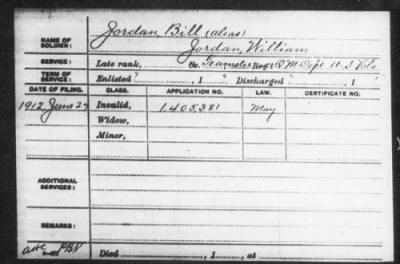 NAME OF SOLDIER: Jordan Bill (alias)
Jordan, William
SERVICE: Late rank, Co. Teamster Reg't Q M Dept U.S. Vols
TERM OF SERVICE: Enlisted ? , 1 ? Discharged ? , 1
DATE OF FILING. CLASS. APPLICATION NO. LAW. CERTIFICATE NO.
1912 June 27 Invalid, 1405381 May
Widow,
Minor,
ADDITIONAL SERVICES:
REMARKS:
Died , 1 , at